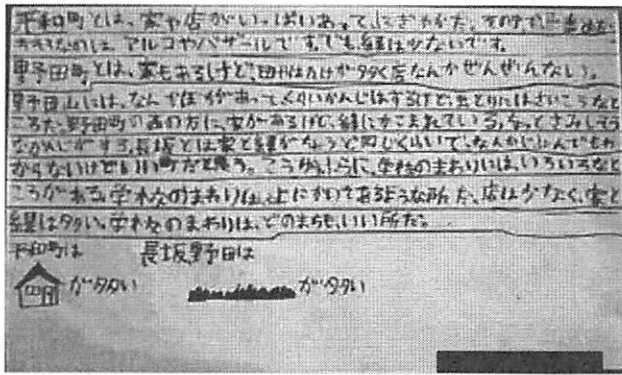 平和町とは、家や店がいっぱいあってにぎやかだ。その中で一番
なのは、アルコやバザールです。でも緑は少ないです。
野田町とは、家もあるけど、田んぼや畑が多く店なんかぜんぜんない。
野田山には、なんぼ があって、くらいかんじはするけど、 とりにはさいこうなと
ころだ。野田町の西の方に、家があるけど、緑にかこまれている。ちょっとさみしそう
なかんじがする。長坂とは家と緑がちょうど同じくらいで、なんかじんでもわ
からないけどいい町だと思う。こういうふうに、学校のまわりには、いろいろなと
ころがある。学校のまわりは、上にかいてあるような所だ。店は少なく、家と
緑は多い。学校のまわりは、どのまちも、いい所だ。
平和町は 長坂野田は
が多い が多い